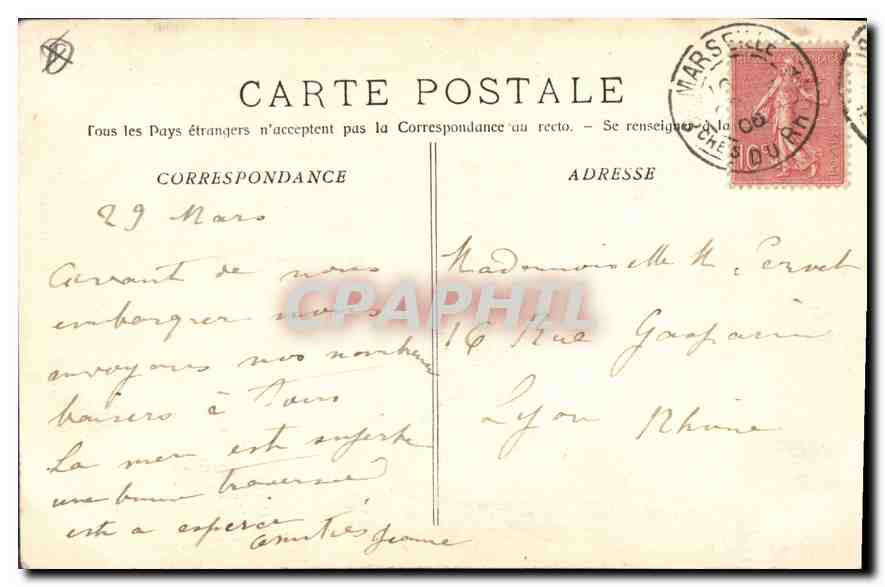 CARTE POSTALE
Tous les Pays étrangers n'acceptent pas la Correspondance au recto. - Se renseigner à la
CORRESPONDANCE
29 Mars
avant de nous
embarquer nous
envoyons nos nombreux
baisers à Tous
La mer est superbe
une bonne traversée
est a esperer
amitiés Jeanne
ADRESSE
Mademoiselle M. Pervet
16 Rue Gasparin
Lyon Rhône
MARSEILLE
06
CHES DU RH
10
CPAPHIL